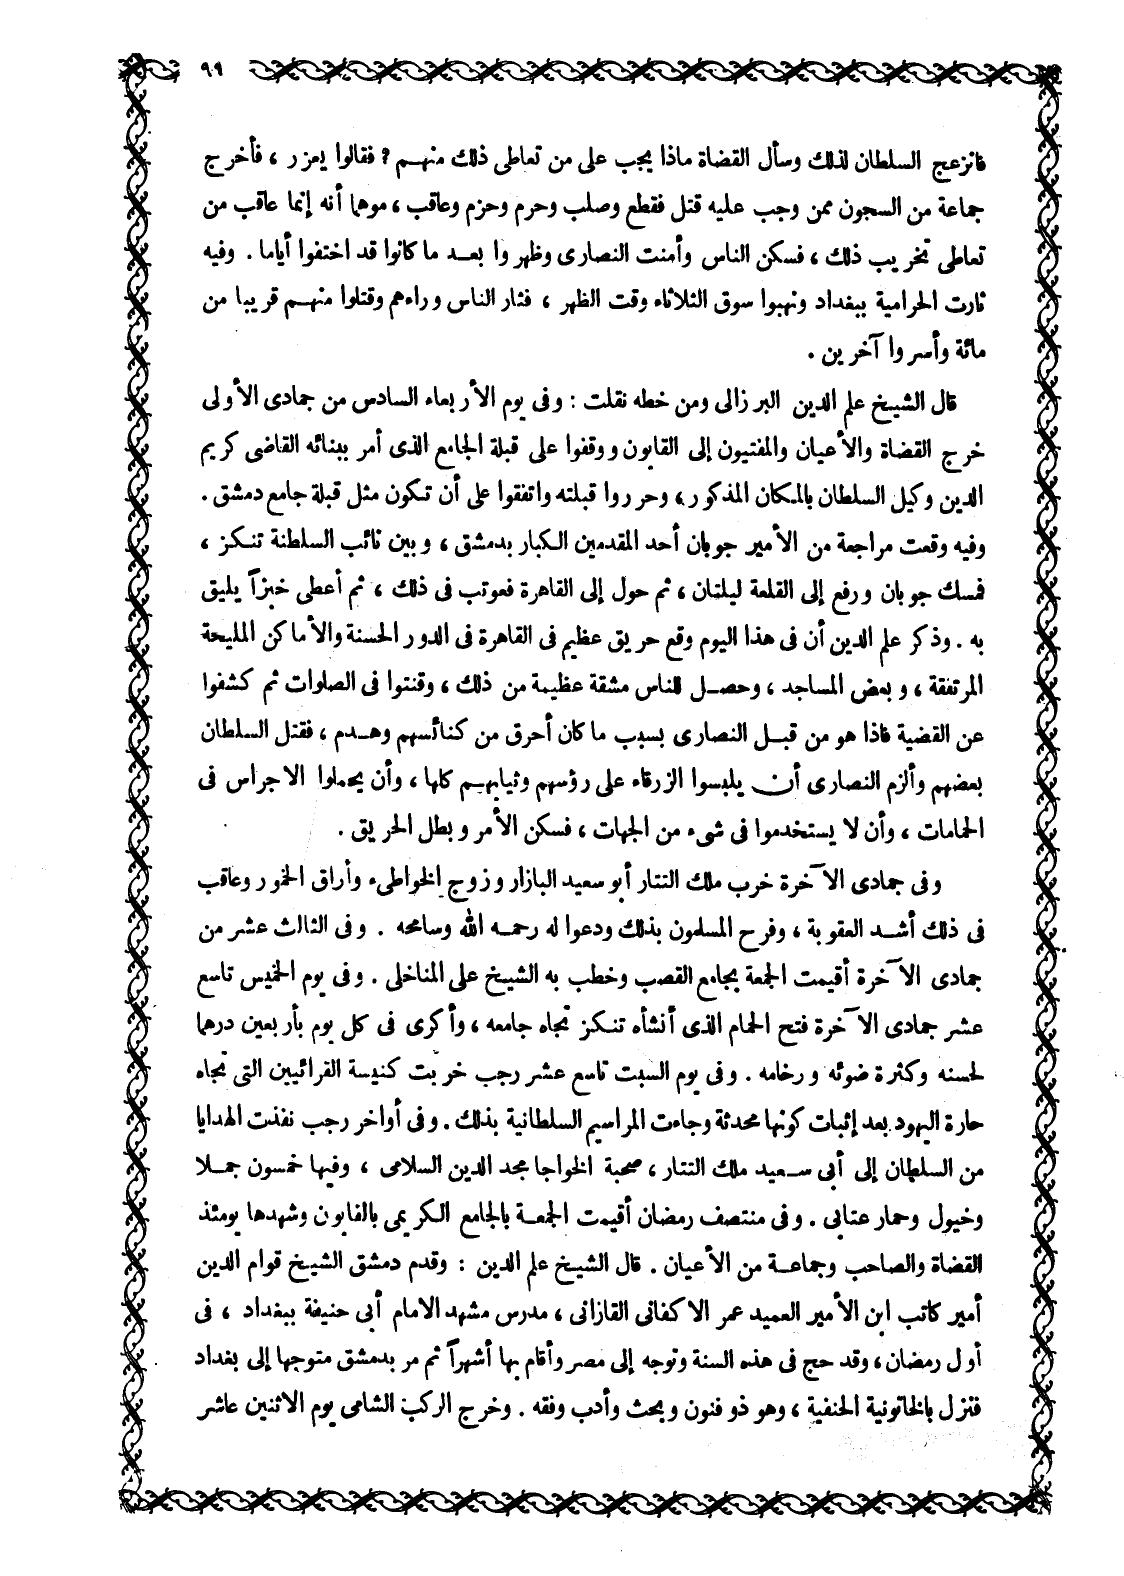 ٩٩
فانزعج السلطان لذلك وسأل القضاة ماذا يجب على من تعاطى ذلك منهم ؟ فقالوا يعزر ، فأخرج
جماعة من السجون ممن وجب عليه قتل فقطع وصلب وحرم وحزم وعاقب ، موهما أنه إنما عاقب من
تعاطى تخريب ذلك ، فسكن الناس وأمنت النصارى وظهروا بعد ما كانوا قد اختفوا أياما . وفيه
ثارت الحرامية ببغداد ونهبوا سوق الثلاثاء وقت الظهر ، فثار الناس وراءهم وقتلوا منهم قريبا من
مائة وأسروا آخرين .
قال الشيخ علم الدين البرزالى ومن خطه نقلت : وفى يوم الأربعاء السادس من جمادى الأولى
خرج القضاة والأعيان والمفتيون إلى القابون ووقفوا على قبلة الجامع الذى أمر ببنائه القاضى كريم
الدين وكيل السلطان بالمكان المذكور ، وحرروا قبلته واتفقوا على أن تكون مثل قبلة جامع دمشق .
وفيه وقعت مراجعة من الأمير جوبان أحد المقدمين الكبار بدمشق ، وبين نائب السلطنة تنكز ،
فمسك جوبان ورفع إلى القلعة ليلتان ، ثم حول إلى القاهرة فعوتب فى ذلك ، ثم أعطى خبزاً يليق
به . وذكر علم الدين أن فى هذا اليوم وقع حريق عظيم فى القاهرة فى الدور الحسنة والأماكن المليحة
المرتفقة ، وبعض المساجد ، وحصل للناس مشقة عظيمة من ذلك ، وقنتوا فى الصلوات ثم كشفوا
عن القضية فاذا هو من قبل النصارى بسبب ما كان أحرق من كنائسهم وهدم ، فقتل السلطان
بعضهم وألزم النصارى أن يلبسوا الزرقاء على رؤسهم وثيابهم كلها ، وأن يحملوا الاجراس فى
الحمامات ، وأن لا يستخدموا فى شىء من الجهات ، فسكن الأمر وبطل الحريق .
وفى جمادى الآخرة خرب ملك التتار أبو سعيد البازار وزوج الخواطىء وأراق الخمور وعاقب
فى ذلك أشد العقوبة ، وفرح المسلمون بذلك ودعوا له رحمه الله وسامحه . وفى الثالث عشر من
جمادى الآخرة أقيمت الجمعة بجامع القصب وخطب به الشيخ على المناخلى . وفى يوم الخميس تاسع
عشر جمادى الآخرة فتح الحمام الذى أنشأه تنكز تجاه جامعه ، وأكرى فى كل يوم بأربعين درهما
لحسنه وكثرة ضوئه ورخامه . وفى يوم السبت تاسع عشر رجب خربت كنيسة القرائيين التى تجاه
حارة اليهود بعد إثبات كونها محدثة وجاءت المراسيم السلطانية بذلك . وفى أواخر رجب نفذت الهدايا
من السلطان إلى أبى سعيد ملك التتار ، صحبة الخواجا مجد الدين السلامى ، وفيها خمسون جملا
وخيول وحمار عتابى . وفى منتصف رمضان أقيمت الجمعة بالجامع الكريمى بالقابون وشهدها يومئذ
القضاة والصاحب وجماعة من الأعيان . قال الشيخ علم الدين : وقدم دمشق الشيخ قوام الدين
أمير كاتب ابن الأمير العميد عمر الاكفانى القازانى ، مدرس مشهد الامام أبى حنيفة ببغداد ، فى
أول رمضان ، وقد حج فى هذه السنة وتوجه إلى مصر وأقام بها أشهراً ثم مر بدمشق متوجها إلى بغداد
فنزل بالخاتونية الحنفية ، وهو ذو فنون وبحث وأدب وفقه . وخرج الركب الشامى يوم الاثنين عاشر